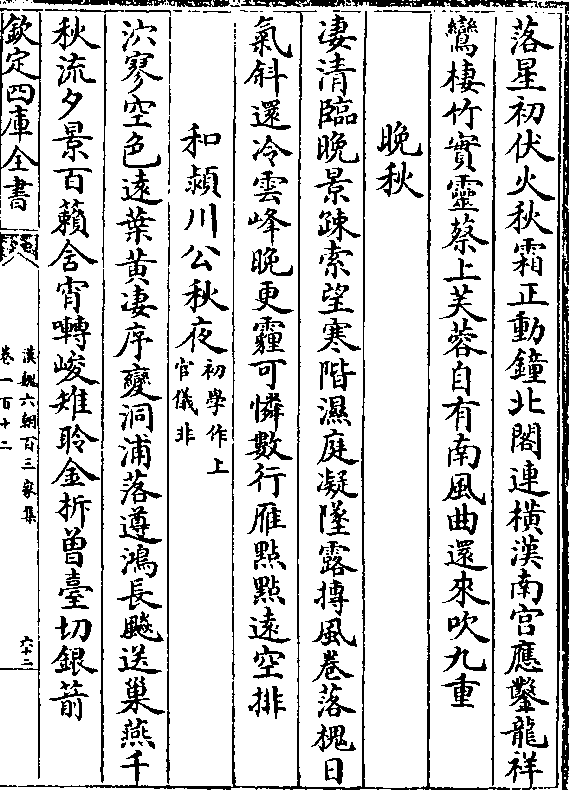 落星初伏火秋霜正動鐘北閣連橫漢南宮應鑿龍祥
鸞棲竹實靈蔡上芙蓉自有南風曲還來吹九重
晚秋
凄清臨晚景疎索望寒階濕庭凝墜露摶風卷落槐日
氣斜還冷雲峰晚更霾可憐數行雁點點遠空排
和潁川公秋夜初學作上官儀非
泬寥空色遠葉黃凄序變洞浦落遵鴻長飈送巢燕千
秋流夕景百籟含宵囀峻雉聆金柝曾臺切銀箭
欽定四庫全書
漢魏六朝百三家集
卷一百十二
六十二